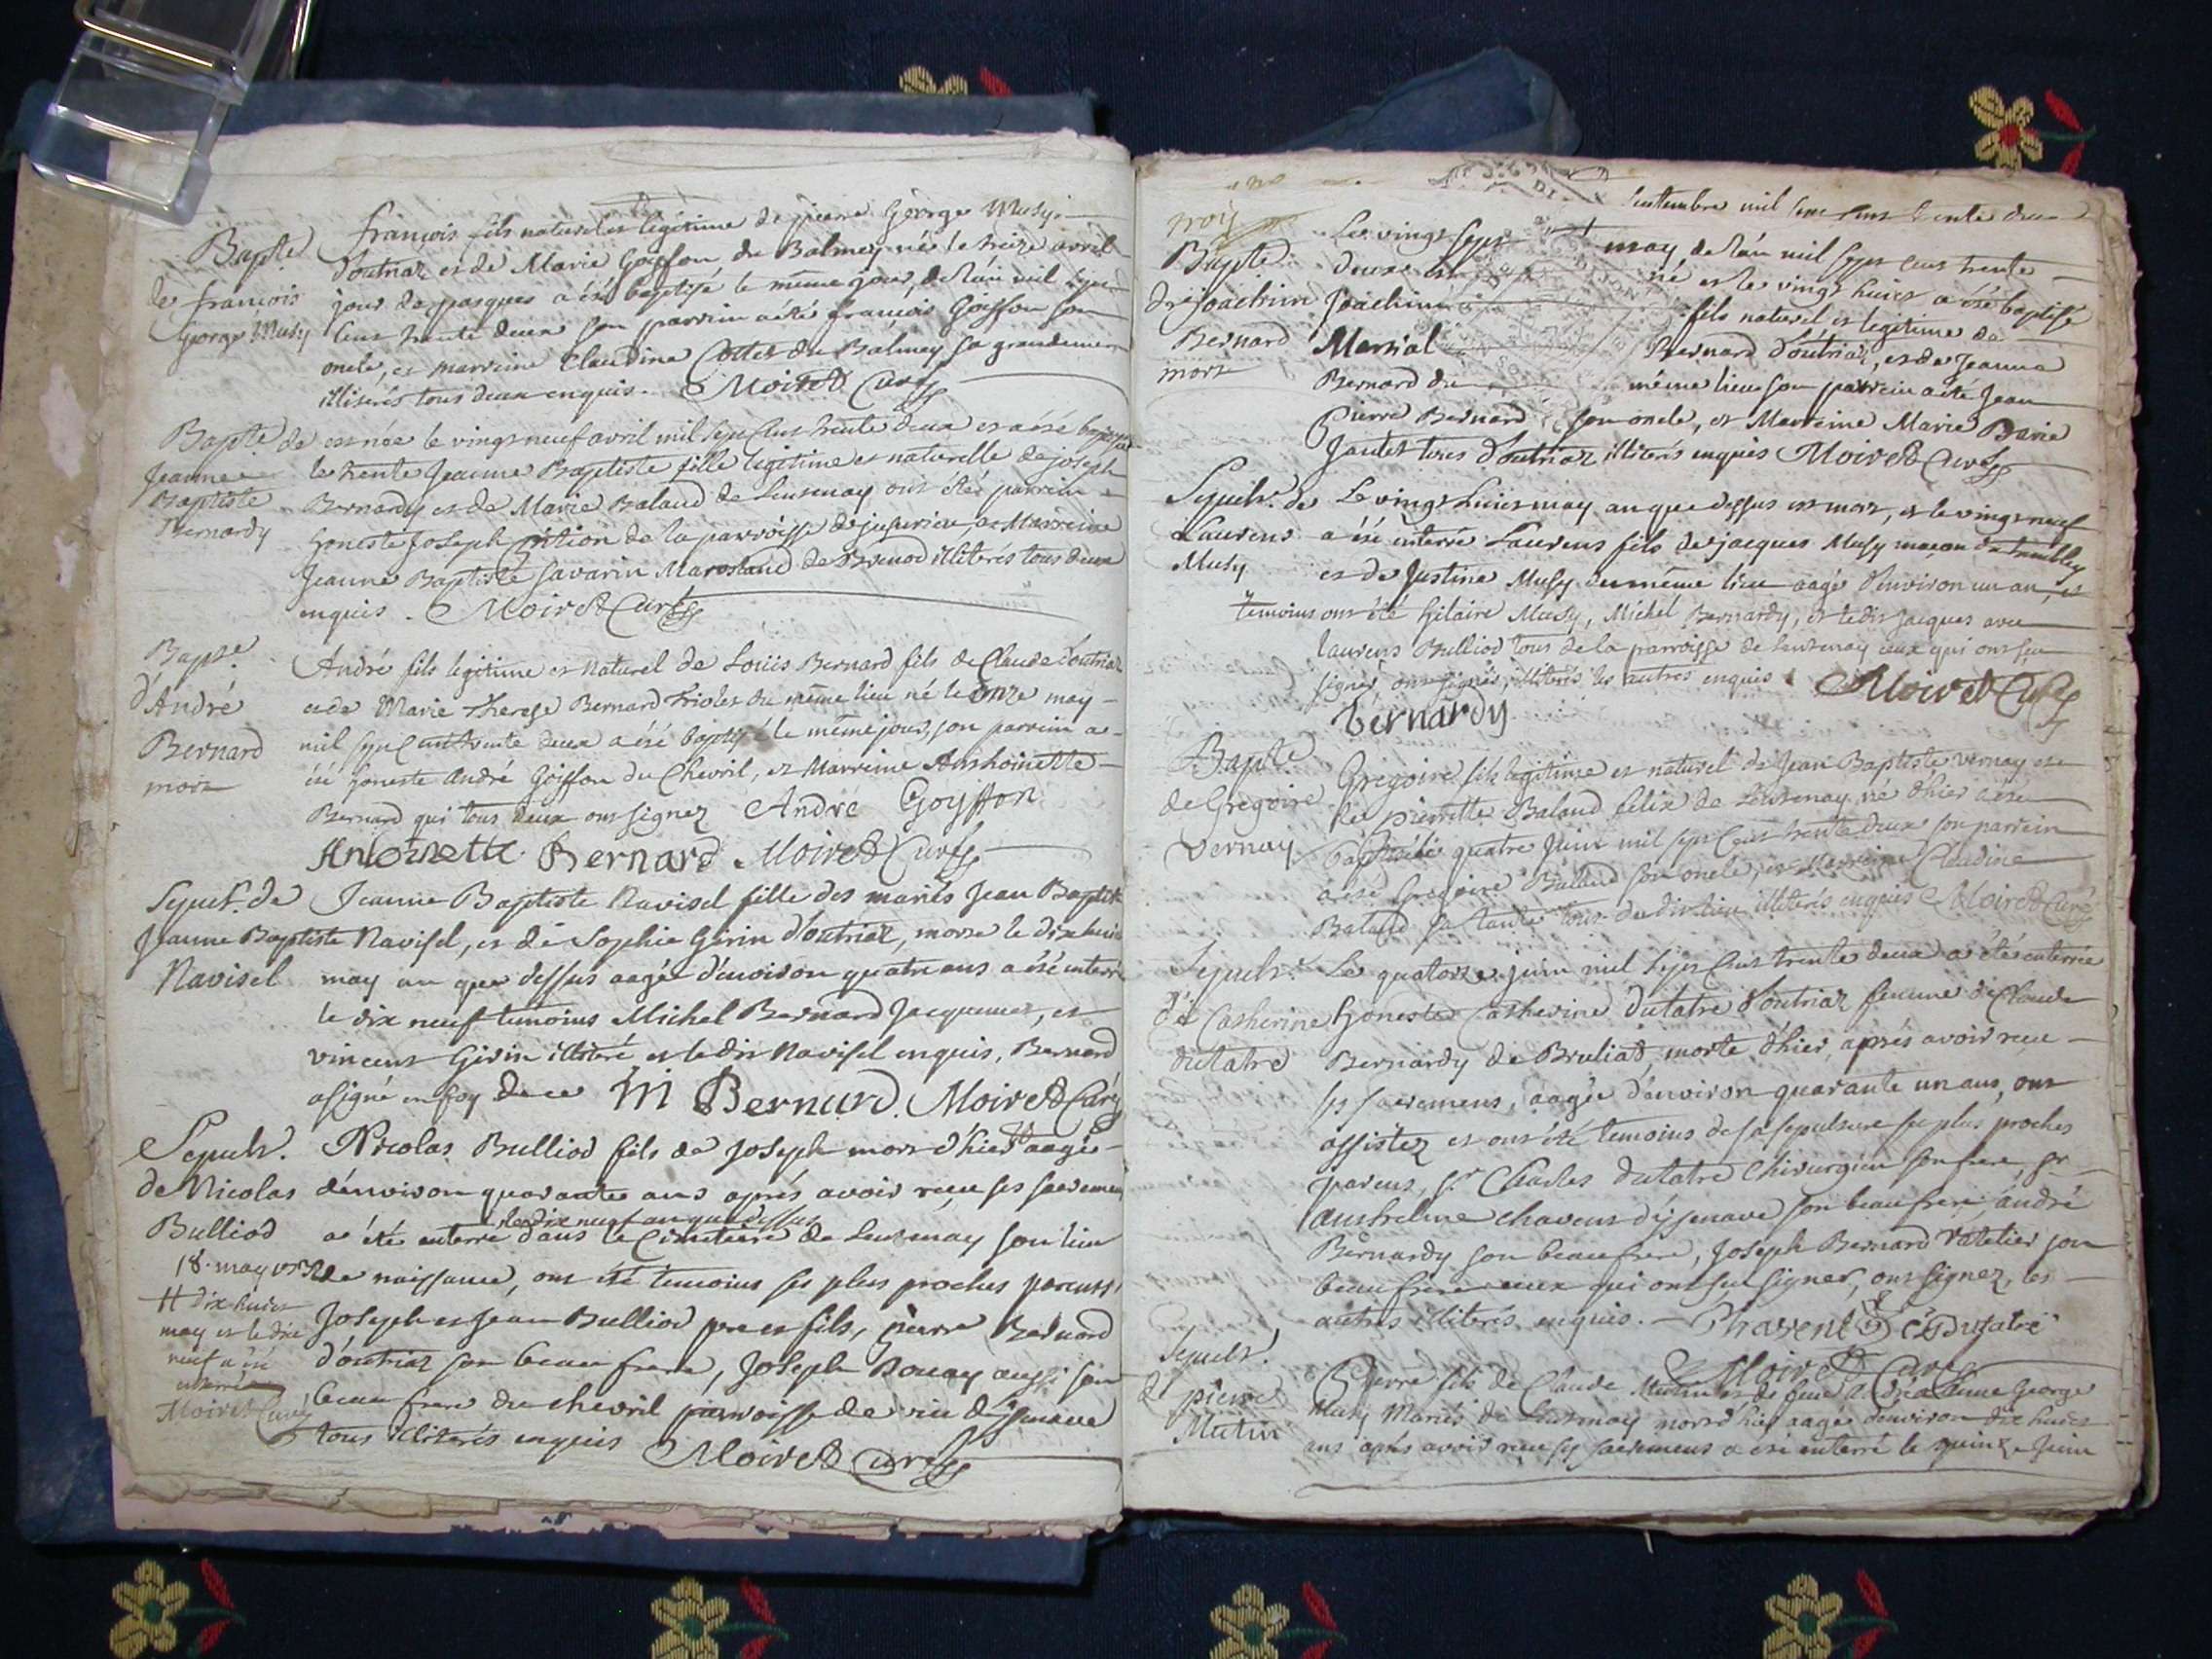 Bapte
de françois
George Musy
françois fils naturel et legitime de pierre George Musy
d'outriaz et de Marie Goiffon du Balmey né le treize avril
jour de pasques a été baptisé le même jour, de l'an mil sept
cent trente deux son parrin a été françois Goiffon son
oncle, et marreine Claudine Cottet du Balmey sa grandmere
illiterés tous deux enquis. Moiret Curé
Bapte de
Jeanne
Baptiste
Bernardy
est née le vingt neuf avril mil sept cent trente deux et a été baptisée
le trente Jeanne Baptiste fille legitime et naturelle de joseph
Bernardy et de Marie Balaud de Lentenay ont étés parrein
honeste Joseph de la parroisse de jujurieu, et Marreine
Jeanne Baptiste Savarin de Brenod illiterés tous deux
enquis. Moiret Curé
Bapte
d'André
Bernard
mort
André fils legitime et naturel de Loüis Bernard fils de Claude d'outriaz
et de Marie Therese Bernard Triolet du même lieu né le onze may
mil sept cent trente deux a été baptisé le même jour, son parrein a
été honeste André Goiffon du Chevril, et Marreine Anthoinette
Bernard qui tous deux ont signez André Goyffon
Antoinette Bernard Moiret Curé
Sepult. de
Jeanne Baptiste
Navisel
Jeanne Baptiste Navisel fille des mariés Jean Baptiste
Navisel, et de Sophie Girin d'outriaz, morte le dix huit
may an que dessus aagée d'environ quatre ans a été enterrée
le dix neuf temoins Michel Bernard Jacquemet, et
vincent Girin illiteré et ledit Navisel enquis, Bernard
a signé en foy de ce M Bernard. Moiret Curé
Sepult.
de Nicolas
Bulliod
18. may 1732
# dix huit
may et le dix
neuf a été
enterré
Moiret Curé
Nicolas Bulliod fils de Joseph mort d'hier # aagé
d'environ quarante ans aprés avoir receu ses sacremens
le dix neuf an que dessus
a été enterré dans le Cimetiere de Lentenay son lieu
de naissance, ont été temoins ses plus proches parents,
Joseph et Jean Bulliod pere et fils, pierre Bernard
d'outriaz son beau frere, Joseph Bouay aussi son
beau frere du chevril parroisse de vieu d'yzenave
tous illiterés enquis Moiret Curé
Septembre mil sept cent trente deux
Bapte
de joachim
Bernard
mort
Le vingt sept may, de l'an mil sept cent trente
deux est né et le vingt huit a été baptisé
Joachim fils naturel et legitime de
Martial Bernard d'outriaz, et de Jeanne
Bernard du même lieu son parrein a été Jean
Pierre Bernard son oncle, et Marreine Marie
Jantet tous d'outriaz illiterés enquis Moiret Curé
Sepult. de
Laurens
Musy
Le vingt huit may an que dessus est mort, et le vingt neuf
a été enterré Laurens fils de jacques Musy macon du trembley
et de Justine Musy du même lieu aagé d'environ un an, et
temoins ont été hilaire Musy, Michel Bernardy, et ledit jacques avec
laurens Bulliod tous de la parroisse de Lentenay ceux qui ont sçu
signer ont signés, illiterés les autres enquis Moiret Curé
Bernardy
Bapte
de Gregoire
Vernay
Gregoire fils legitime et naturel de Jean Baptiste vernay et
de pierrette Balaud felix de Lentenay, né d'hier a été
baptisé le quatre Juin mil sept cent trente deux son parrein
a été Gregoire Balaud son oncle, et Marreine Claudine
Balaud sa tante tous dudit lieu illiterés enquis Moiret Curé
Sepult.
de Catherine
dutatre
Le quatorze juin mil sept cent trente deux a été enterrée
honeste Catherine dutatre d'outriaz femme de Claude
Bernardy de Bruliat, morte d'hier, aprés avoir receu
ses sacremens, aagée d'environ quarante un ans, ont
assistez et ont été temoins de sa sepulture ses plus proches
parens, sr Charles dutatre chirurgien son frere, sr
anthelme chavent d'yzenave son beau frere, andré
Bernardy son beau frere, Joseph Bernard Ratelier son
beau frere ceux qui ont sçu signer, ont signez, les
autres illiterés enquis. Chavent C Dutatre
Moiret Curé
Sepult.
de pierre
Mutin
Pierre fils de Claude Mutin et de feue Claudine George
Musy Mariés de Lentenay mort d'hier aagé d'environ dix huit
ans aprés avoir receu ses sacremens a été enterré le quinze Juin